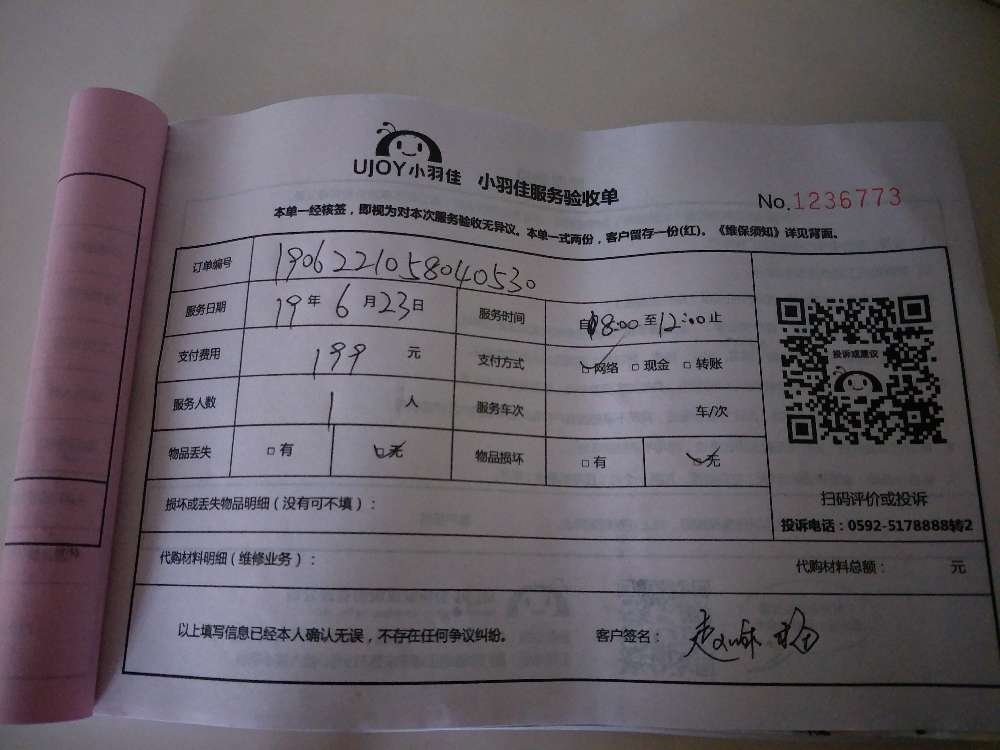 UJOY小羽佳 小羽佳服务验收单
No.1236773
本单一经核签，即视为对本次服务验收无异议。本单一式两份，客户留存一份(红)。《维保须知》详见背面。
订单编号 1906221058040530
服务日期 19年6月23日 服务时间 自8:00至12:00止
支付费用 199元 支付方式 网络 □现金 □转账
服务人数 1人 服务车次 车/次
物品丢失 □有 无 物品损坏 □有 无
投诉或建议
扫码评价或投诉
投诉电话：0592-5178888转2
损坏或丢失物品明细（没有可不填）：
代购材料明细（维修业务）： 代购材料总额： 元
以上填写信息已经本人确认无误，不存在任何争议纠纷。 客户签名：